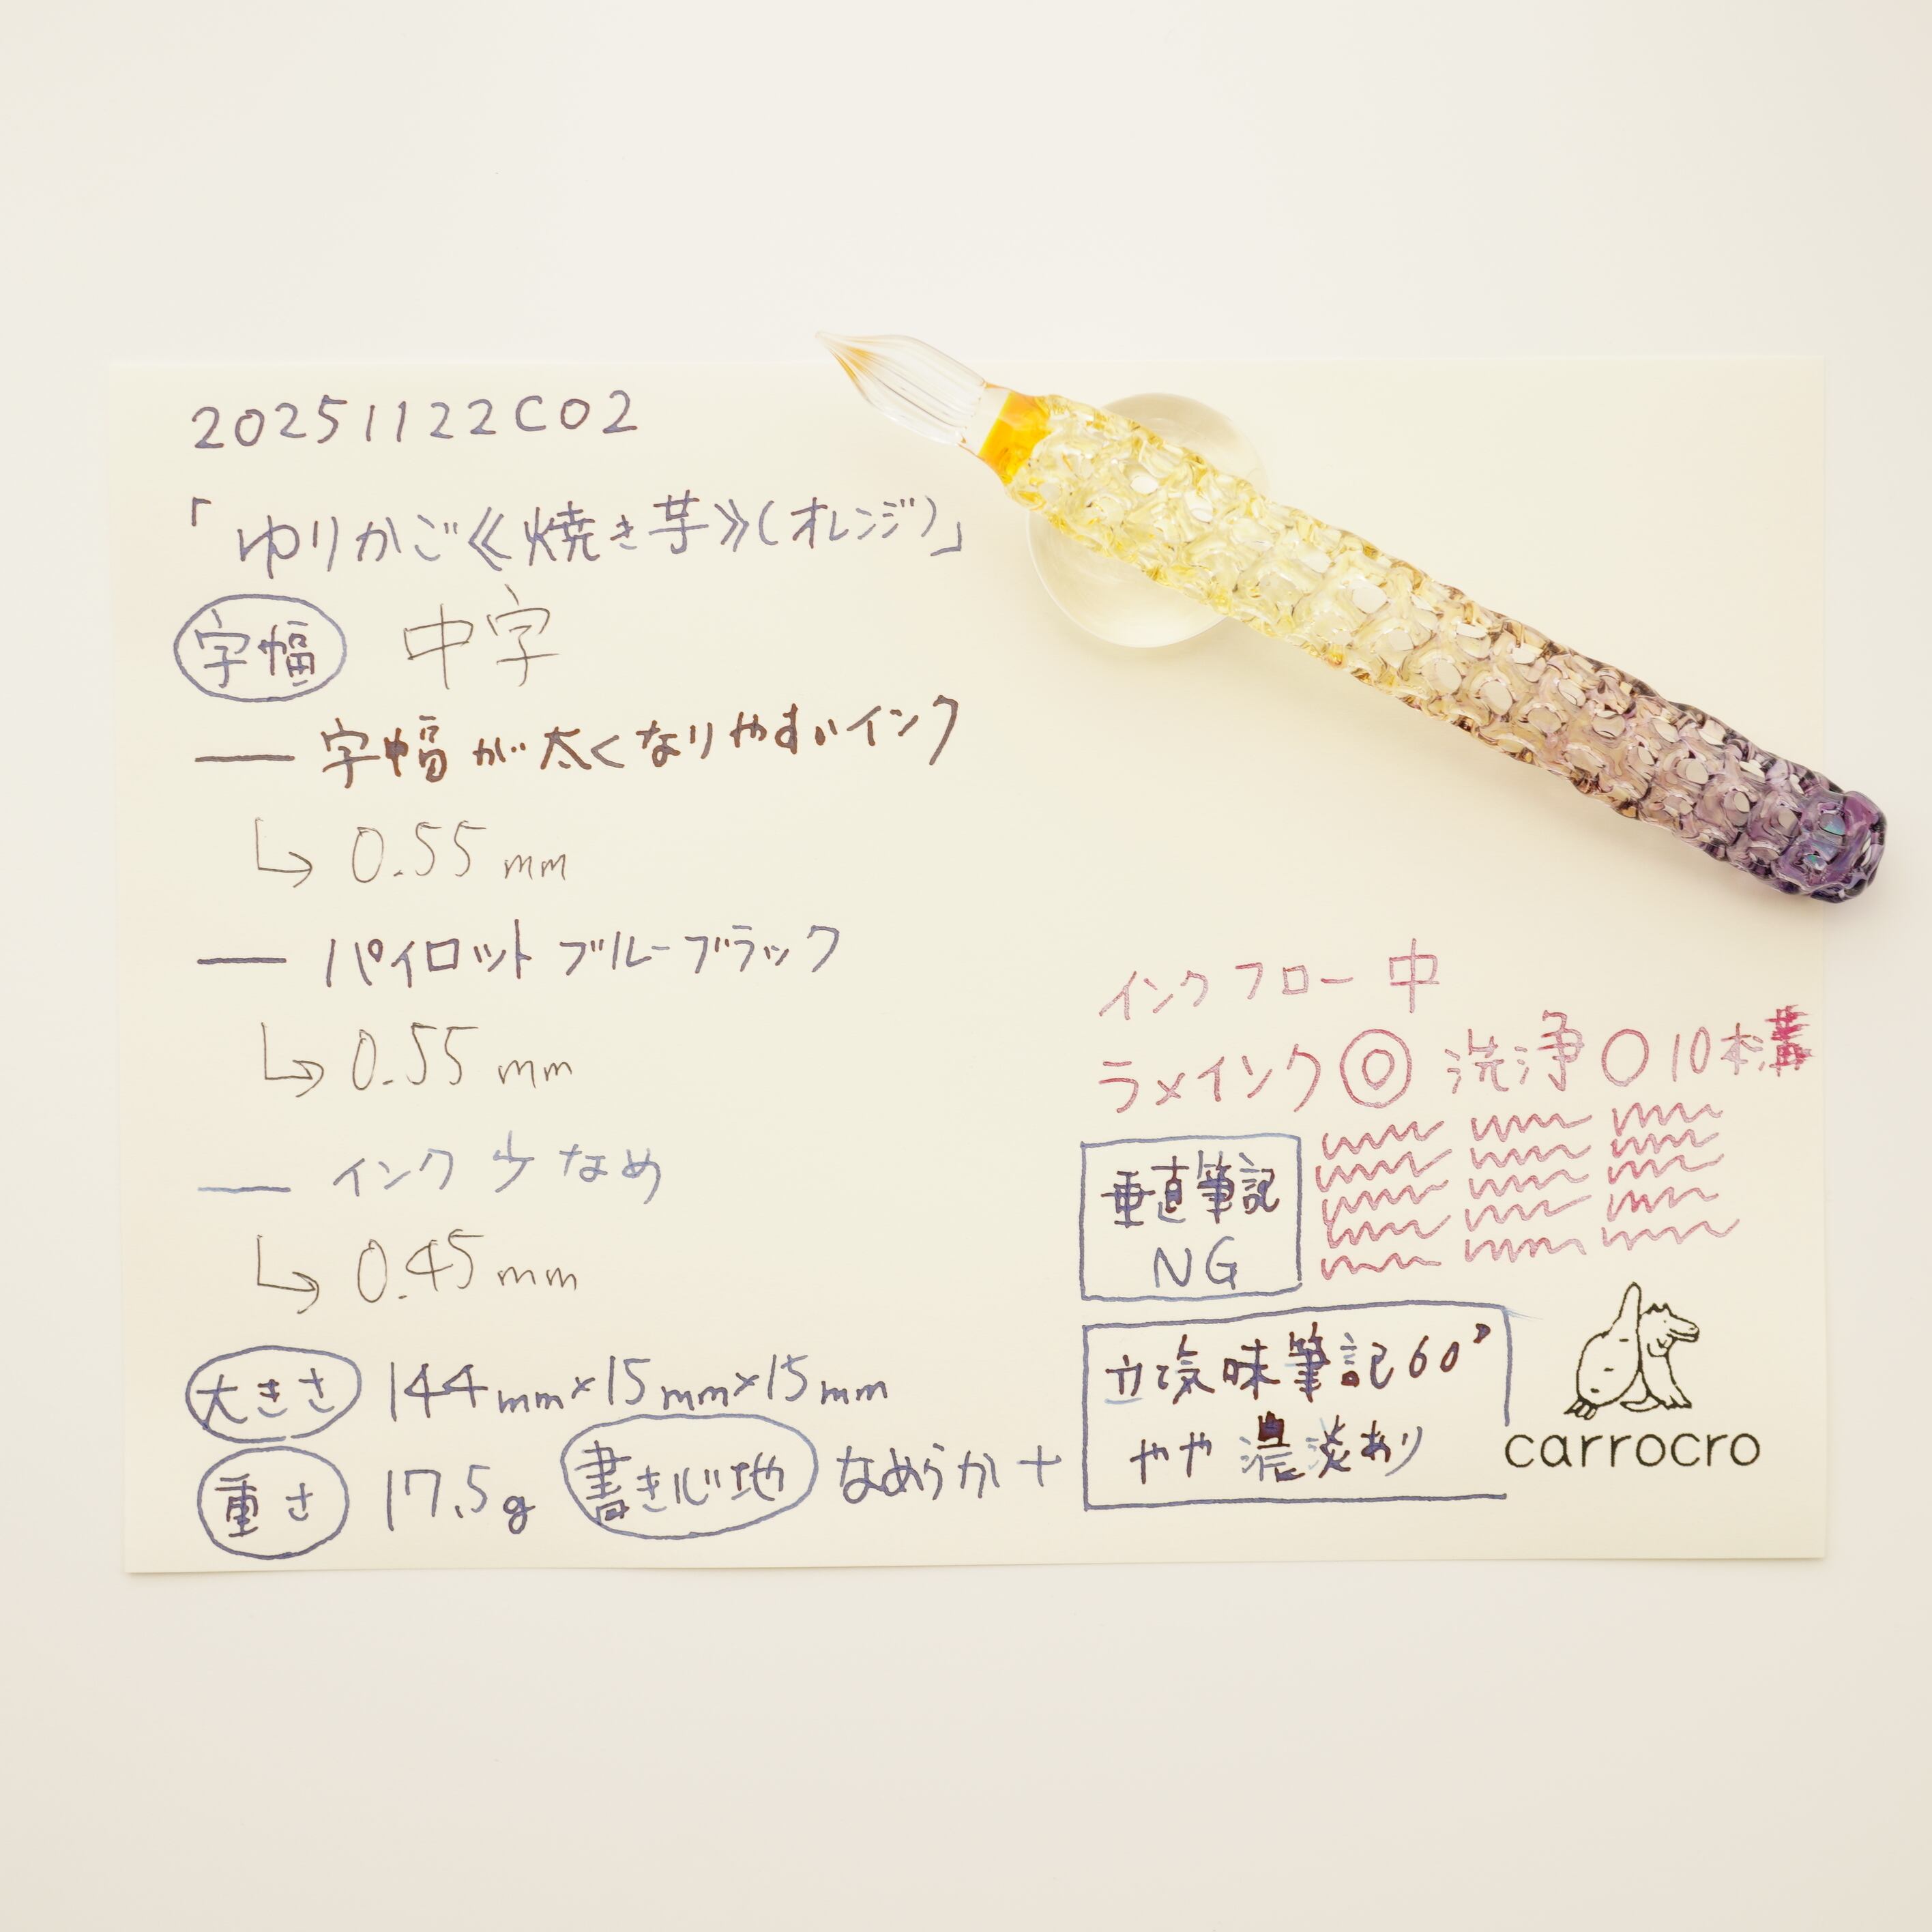 20251122C02
「ゆりかご《焼き芋》(オレンジ)」
字幅 中字
字幅が太くなりやすいインク
0.55mm
パイロット ブルーブラック
0.55mm
インク少なめ
0.45mm
大きさ 144mm×15mm×15mm
重さ 17.5g 書き心地 なめらか+
インクフロー 中
ラメインク◎ 洗浄○10本溝
垂直筆記
NG
立气味筆記60°
やや濃淡あり
carrocro